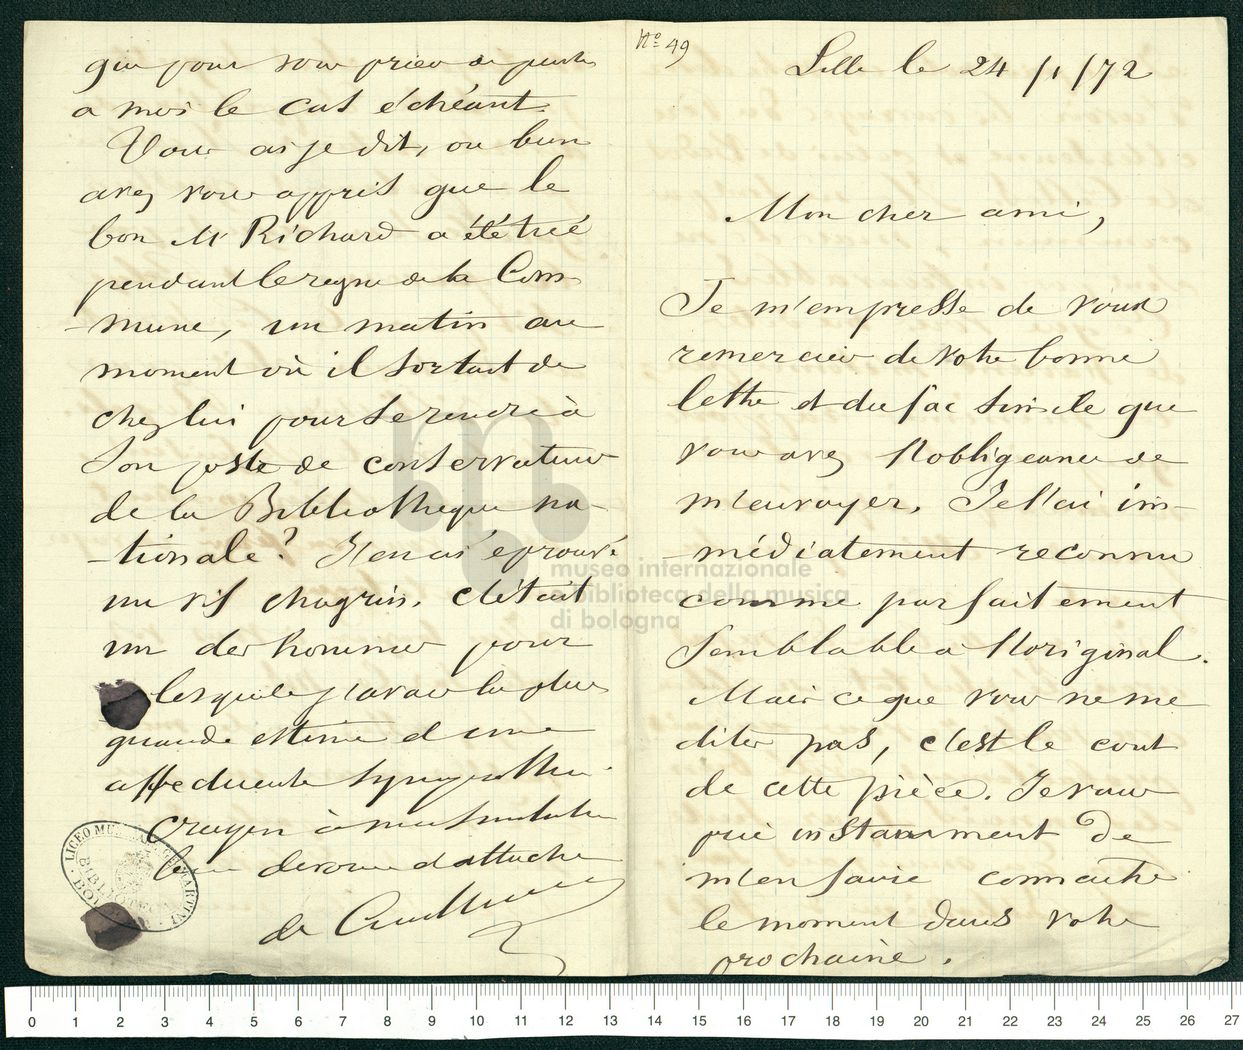 No 49
Lille le 24/1/72
Mon cher ami,
Je m'empresse de vous
remercier de votre bonne
lettre et du fac simile que
vous avez l'obligeance de
m'envoyer. Je l'ai im-
-médiatement reconnu
comme parfaitement
semblable a l'original.
Mais ce que vous ne me
dites pas, c'est le cout
de cette pièce. Je vous
prie instamment de
m'en faire connaitre
le moment dans votre
prochaine.
que pour vous prier de
a moi le cas échéant.
Vous ai je dit, ou bien
avez vous appris que le
bon Mr Richard a été tué
pendant le regne de la Com-
-mune, un matin au
moment où il sortait de
chez lui pour se rendre à
son poste de conservateur
de la Bibliotheque na-
-tionale? J'en ai éprouvé
un vif chagrin. C'était
un des hommes pour
lesquels j'avais la plus
grande estime et une
affectueuse sympathie.
Croyez à mes sentiments
bien devoués d'attache
de Coussemaker
LICEO MUSICALE G.B. MARTINI
BIBLIOTECA
BOLOGNA
museo internazionale
e biblioteca della musica
di bologna
0 1 2 3 4 5 6 7 8 9 10 11 12 13 14 15 16 17 18 19 20 21 22 23 24 25 26 27